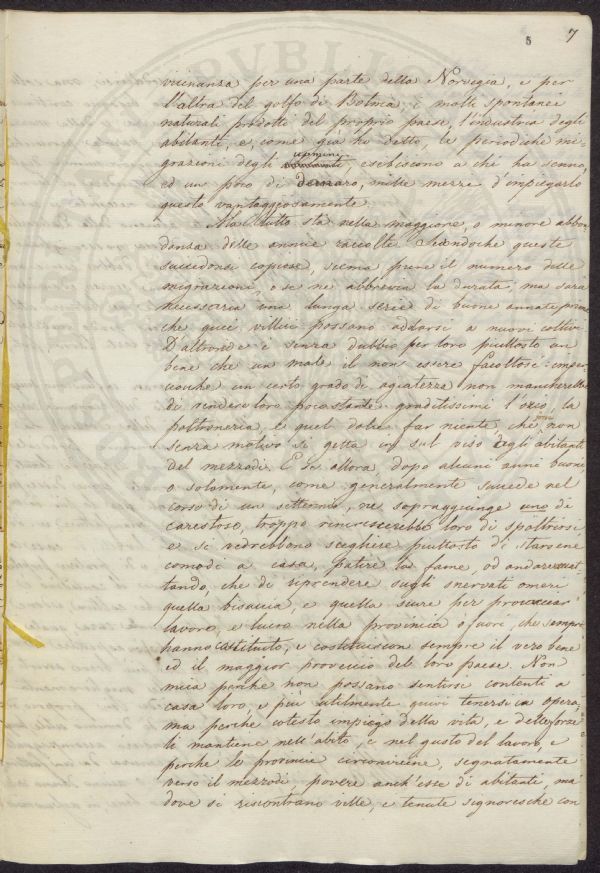 5 7
vicinanza per una parte della Norvegia, e per
l'altra del golfo di Botnia, i molti spontanei
naturali prodotti del proprio paese, l'industria degli
abitanti, e, come già ho detto, le periodiche mi-
uomini
grazioni degli esebiscono a chi ha senno,
ed un poco di denaro, mille mezzi d'impiegarlo
questo vantaggiosamente.
Ma tutto sta nella maggiore, o minore abbon
danza delle annue raccolte. Quandoche queste
succedonsi copiose, scema pure il numero delle
migrazioni, o se ne abbrevia la durata; ma sarà
necessaria una lunga serie di buone annate prima
che quei villici possano addarsi a nuovi coltivi.
D'altronde è senza dubbio per loro piuttosto un
bene che un male il non essere facoltosi imper
ciocchè un certo grado di agiatezza non mancherebbe
di rendere loro pocostante graditissimi l'ozio, la
poltroneria, e quel dolce far niente, che non
senza motivo si getta in sul viso degli abitanti
del mezzodì. E se allora, dopo alcuni anni buoni
o solamente, come generalmente succede nel
corso di un settennio, ne sopraggiunge uno di
carestoso, troppo rincrescerebbe loro di spoltrirsi
e si vedrebbono scegliere piuttosto di starsene
comodi a casa, patire la fame, od andare mat
tando, che di riprendere sugli snervati omeri
quella bisaccia, e quella scure per procacciar
lavoro, e lucro nella provincia o fuori, che sempre
hanno costituito, e costituiscon sempre il vero bene
ed il maggior proveccio del loro paese. Non
mica perchè non possano sentirsi contenti a
casa loro, e più utilmente quivi tenersi ca opera,
ma perchè cotesto impiego della vita, e delle forze
li mantiene nell'abito, e nel gusto del lavoro, e
perche le provincie circonvicine, segnatamente
verso il mezzodì, povere anch'esse di abitanti, ma
dove si riscontrano ville, e tenute signoresche con